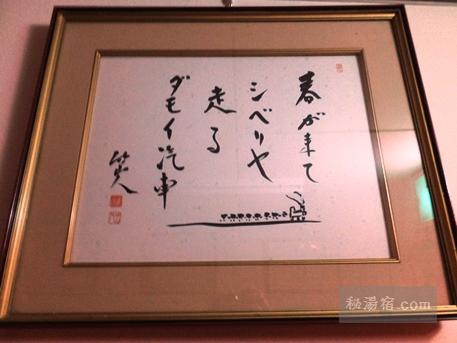 春が来て
シベリヤ
走る
ダモイ汽車
秘湯宿.com